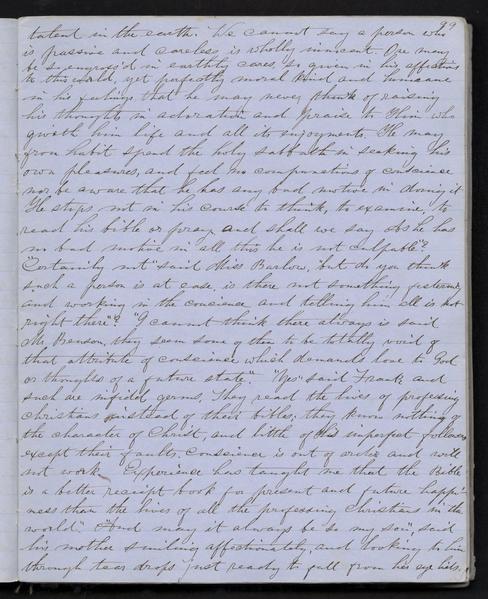 99
talent in the earth. We cannot say a person who
is passive and careless is wholly innocent. One may
be so engross'd in earthly cares, so given in his affections
to this world, yet perfectly moral kind and humane
in his feelings that he may never think of raising
his thoughts in adoration and praise to Him who
giveth him life and all its enjoyments. He may
from habit spend the holy sabbath in seeking his
own pleasures, and feel no compunctions of conscience
nor be aware that he has any bad motive in doing it
He stops not in his course to think, to examine, to
read his bible or pray, and shall we say As he has
no bad motive in all this he is not culpable?
"Certainly not" said Miss Barlow, "but do you think
such a person is at ease, is there not something
and working in the conscience and telling him all is not
right there"? "I cannot think there always is said
Mr. Benson, they seem some of them to be totally void of
that attribute of conscience which demands love to God
or thoughts of a future state." "Yes" said Frank, and
such are They read the lives of professing
christians instead of their bibles; they know nothing of
the character of Christ, and little of His imperfect followers
except their faults. Conscience is out of order and will
not work. Experience has taught me that the Bible
is a better receipt book for present and future happi-
ness than the lives of all the professing Christians in the
world." "And may it always be so my son", said
his mother smiling affectionately, and looking to him
through tear drops just ready to fall from her eye lids.